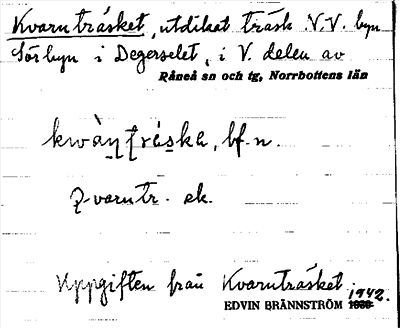 Kvarnträsket, utdikat träsk N.V. byn
Sörbyn i Degerselet, i V. delen av
Råneå sn och tg, Norrbottens län
kwàṇtṛäska, bf. n.
Qvarntr. ek.
Uppgiften från Kvarnträsket
1942.
EDVIN BRÄNNSTRÖM 1938